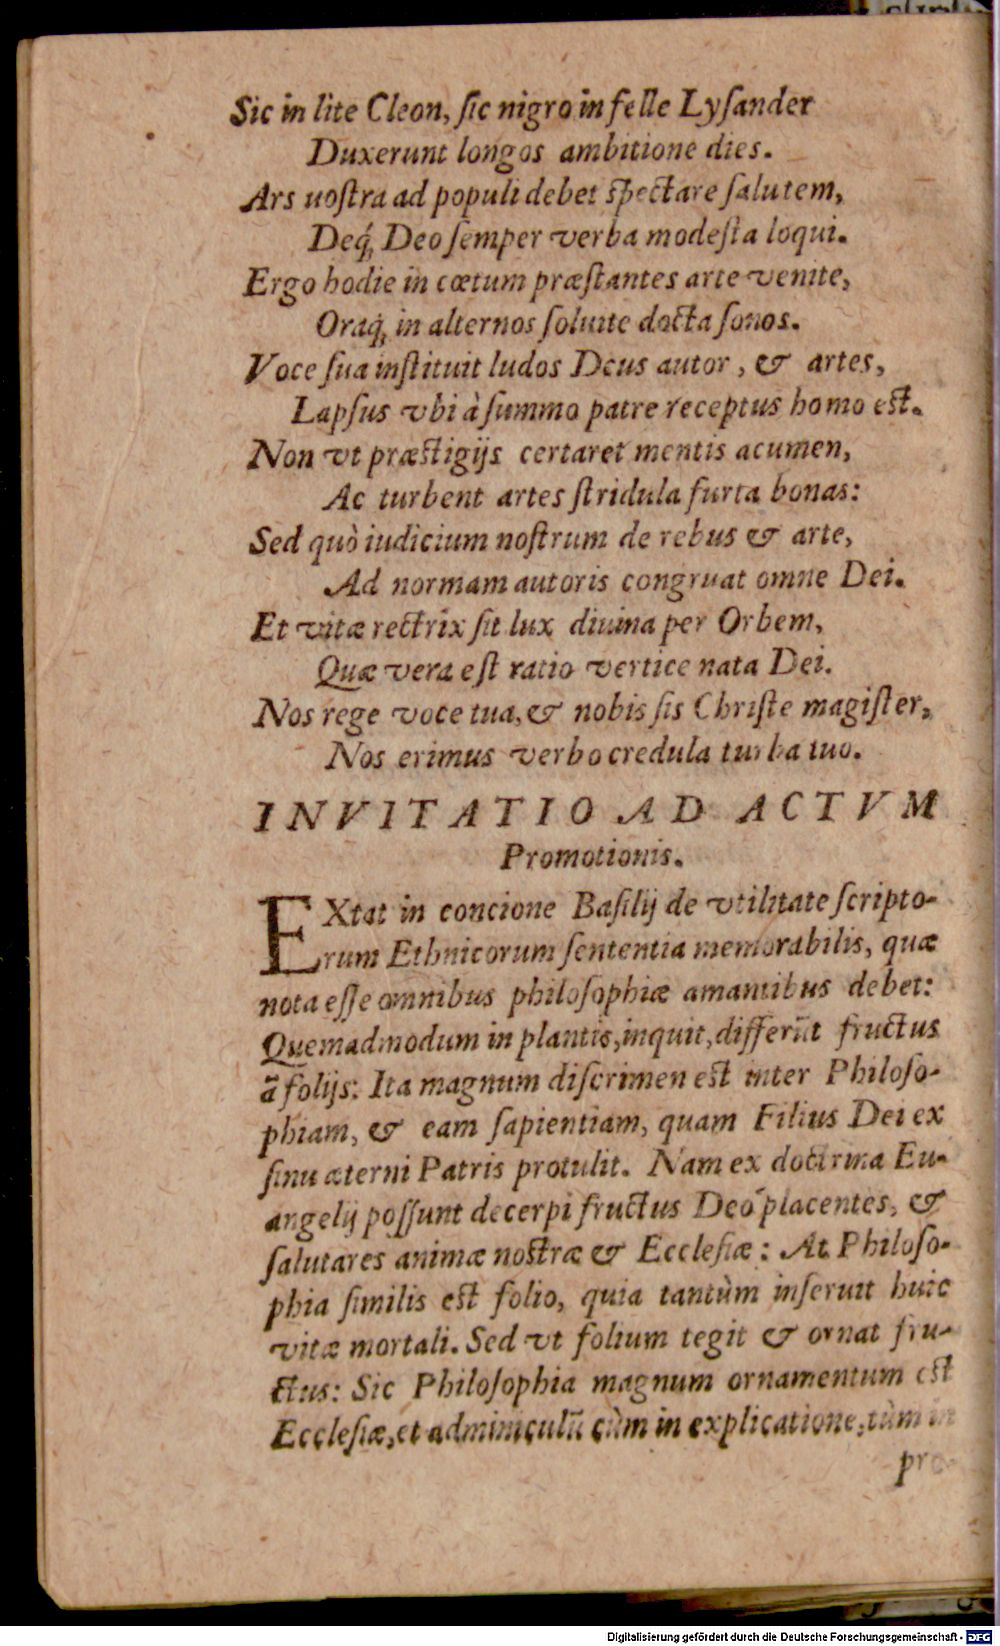 Sic in lite Cleon, ſic nigro in felle Lyſander
Duxerunt longos ambitione dies.
Ars uoſtra ad populi debet ſpectare ſalutem,
Deq́ꝫ Deo ſemper verba modeſta loqui.
Ergo hodie in cœtum præſtantes arte venite,
Oraq́ꝫ in alternos ſoluite docta ſonos.
Voce ſua inſtituit ludos Deus autor, & artes,
Lapſus vbi à ſummo patre receptus homo eſt.
Non vt præſtigijs certaret mentis acumen,
Ac turbent artes ſtridula furta bonas:
Sed quò iudicium noſtrum de rebus & arte,
Ad normam autoris congruat omne Dei.
Et vitæ rectrix ſit lux diuina per Orbem,
Quæ vera eſt ratio vertice nata Dei.
Nos rege voce tua, & nobis ſis Chriſte magiſter,
Nos erimus verbo credula turba tuo.
INVITATIO AD ACTVM
Promotionis.
EXtat in concione Baſilij de vtilitate ſcripto-
rum Ethnicorum ſententia memorabilis, quæ
nota eſſe omnibus philoſophiæ amantibus debet:
Quemadmodum in plantis, inquit, differūt fructus
ā folijs: Ita magnum diſcrimen eſt inter Philoſo-
phiam, & eam ſapientiam, quam Filius Dei ex
ſinu æterni Patris protulit. Nam ex doctrina Eu-
angelij poſſunt decerpi fructus Deo placentes, &
ſalutares animæ noſtræ & Eccleſiæ: At Philoſo-
phia ſimilis eſt folio, quia tantùm inſeruit huic
vitæ mortali. Sed vt folium tegit & ornat fru-
ctus: Sic Philoſophia magnum ornamentum eſt
Eccleſiæ, et adminiculū cùm in explicatione, tùm in
pro-
Digitalisierung gefördert durch die Deutsche Forschungsgemeinschaft - DFG